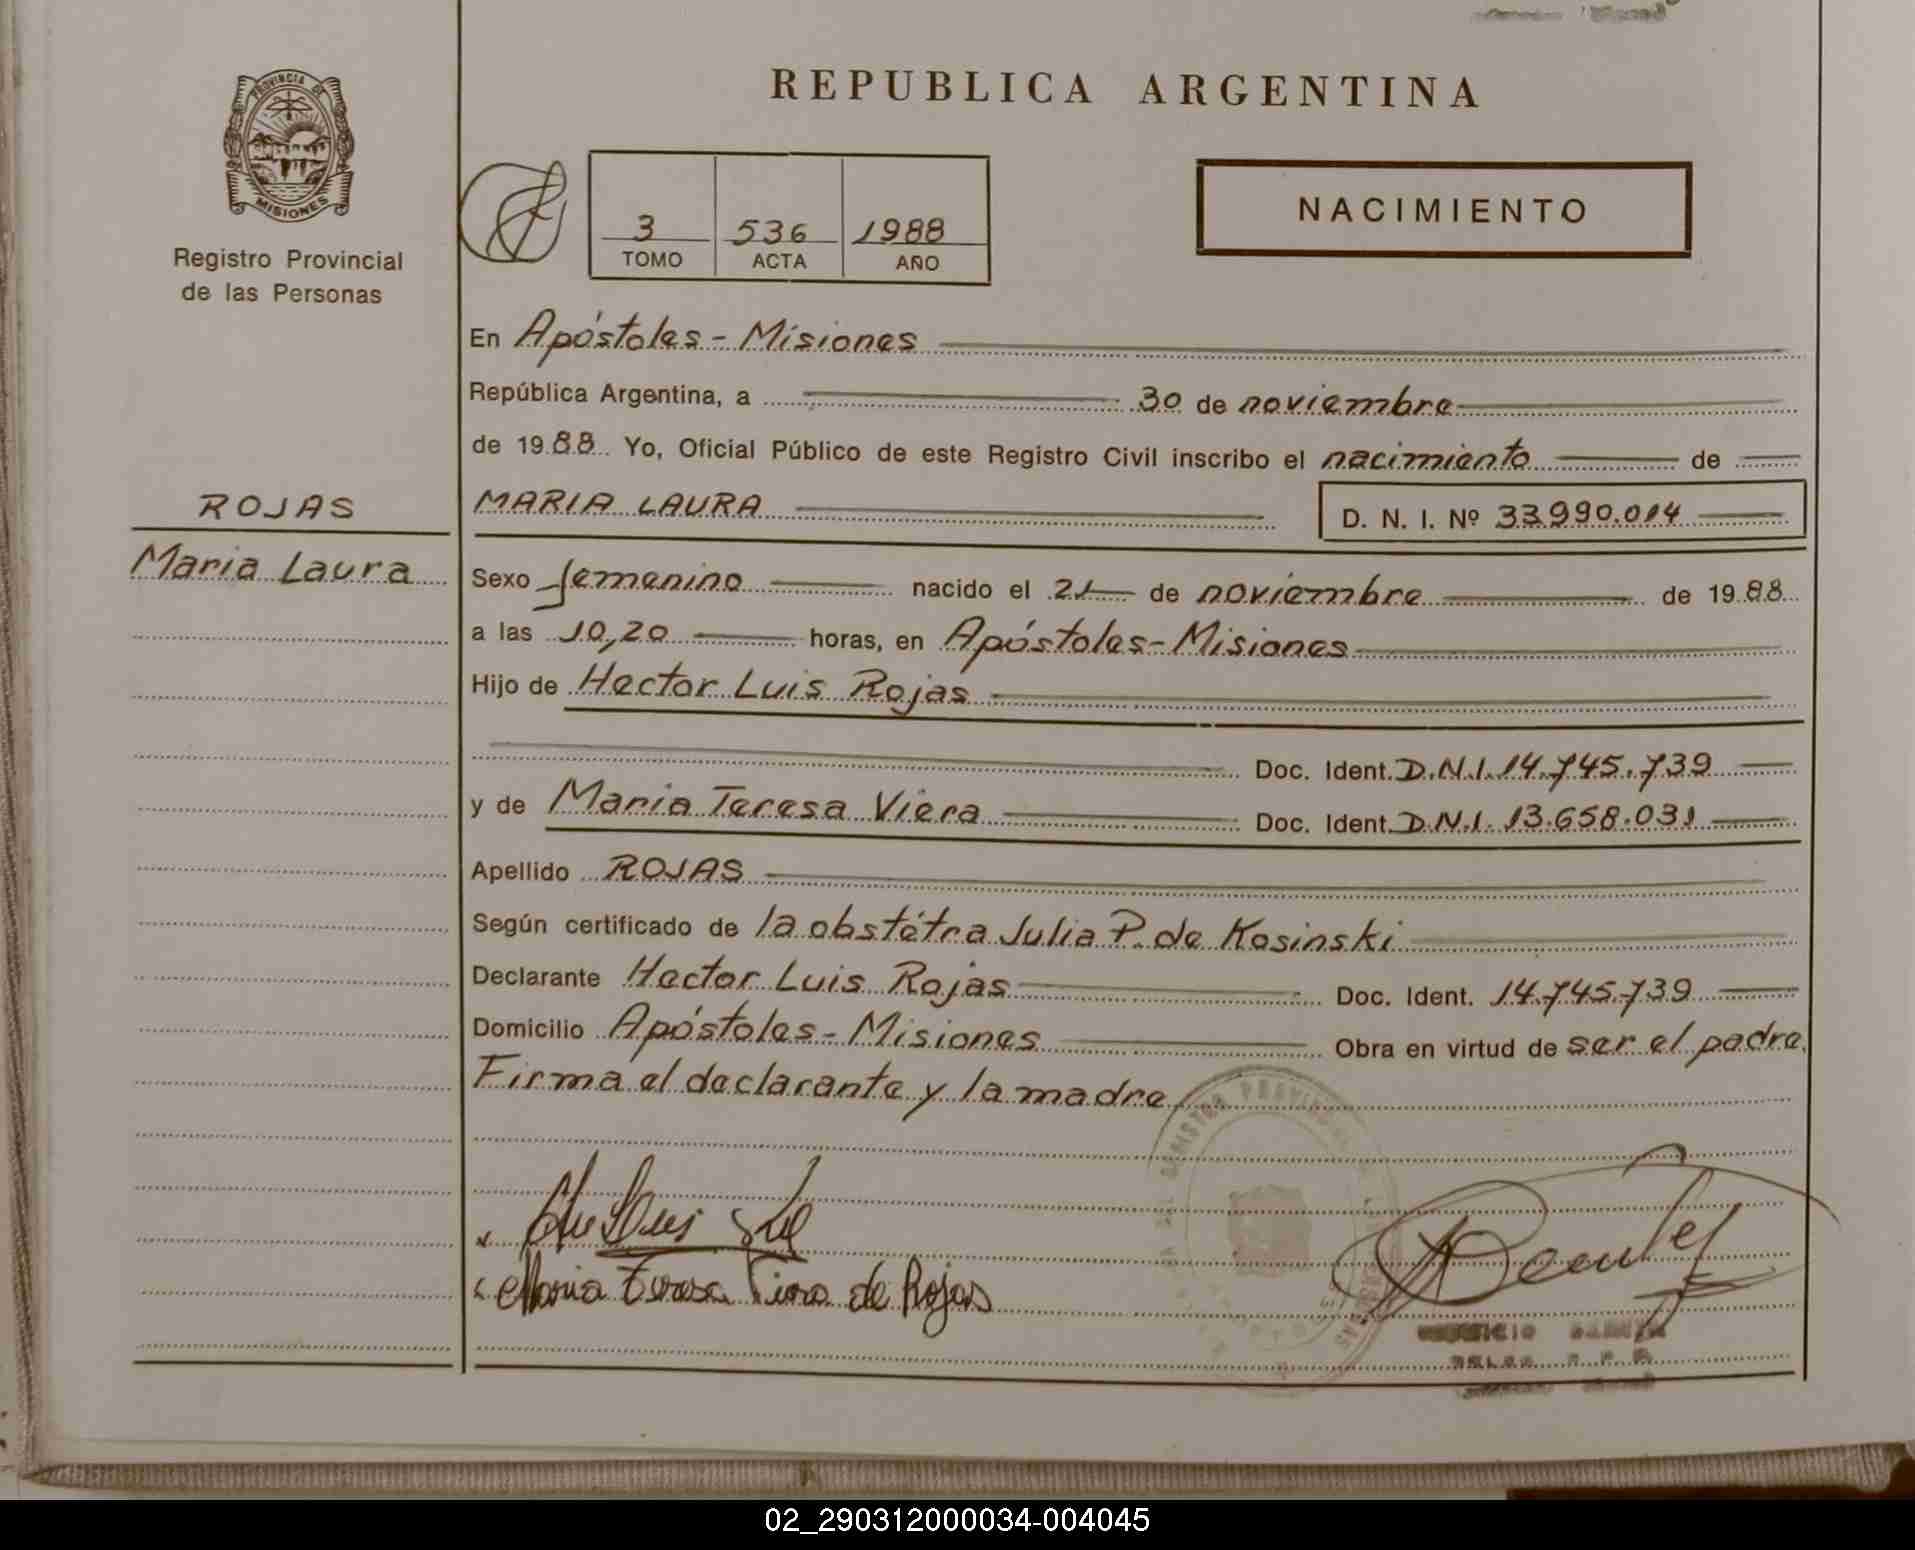 REPUBLICA ARGENTINA
PROVINCIA DE
MISIONES
Registro Provincial
de las Personas
3 536 1988
TOMO ACTA AÑO
NACIMIENTO
En Apóstoles - Misiones
República Argentina, a 30 de noviembre
de 1988 Yo, Oficial Público de este Registro Civil inscribo el nacimiento de
ROJAS
Maria Laura
MARIA LAURA D. N. I. Nº 33.990.014
Sexo femenino nacido el 21 de noviembre de 1988
a las 10,20 horas, en Apóstoles - Misiones
Hijo de Hector Luis Rojas
Doc. Ident. D.N.I. 14.745.739
y de Maria Teresa Viera Doc. Ident. D.N.I. 13.658.031
Apellido ROJAS
Según certificado de la obstétra Julia P. de Kosinski
Declarante Hector Luis Rojas Doc. Ident. 14.745.739
Domicilio Apóstoles - Misiones Obra en virtud de ser el padre.
Firma el declarante y la madre
Maria Teresa Viera de Rojas
02_290312000034-004045